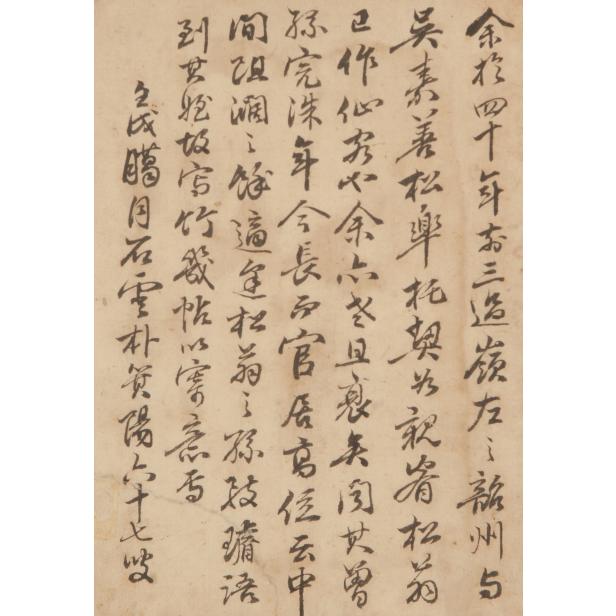 余於四十年前三過嶺左之韶州与
吳泰善松卑托契為親脊松翁
已作仙客也余亦老且衰矣聞其曾
孫完洙年今長而官居高位云中
間阻濶之餘適逢松翁之孫致璿語
到其强故寫竹幾帖以寄意焉
壬戌臈月石雲朴箕陽六十七叟